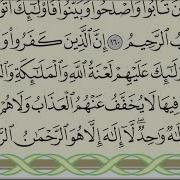 تَابُوا۟ وَأَصْلَحُوا۟ وَبَيَّنُوا۟ فَأُو۟لَٰٓئِكَ
ٱلرَّحِيمُ ١٦٠ إِنَّ ٱلَّذِينَ كَفَرُوا۟ وَ
لَٰٓئِكَ عَلَيْهِمْ لَعْنَةُ ٱللَّهِ وَٱلْمَلَٰٓئِكَةِ وَٱل
فِيهَا لَا يُخَفَّفُ عَنْهُمُ ٱلْعَذَابُ وَلَا هُمْ
لَٰهٌ وَٰحِدٌ لَّآ إِلَٰهَ إِلَّا هُوَ ٱلرَّحْمَٰنُ ٱلر